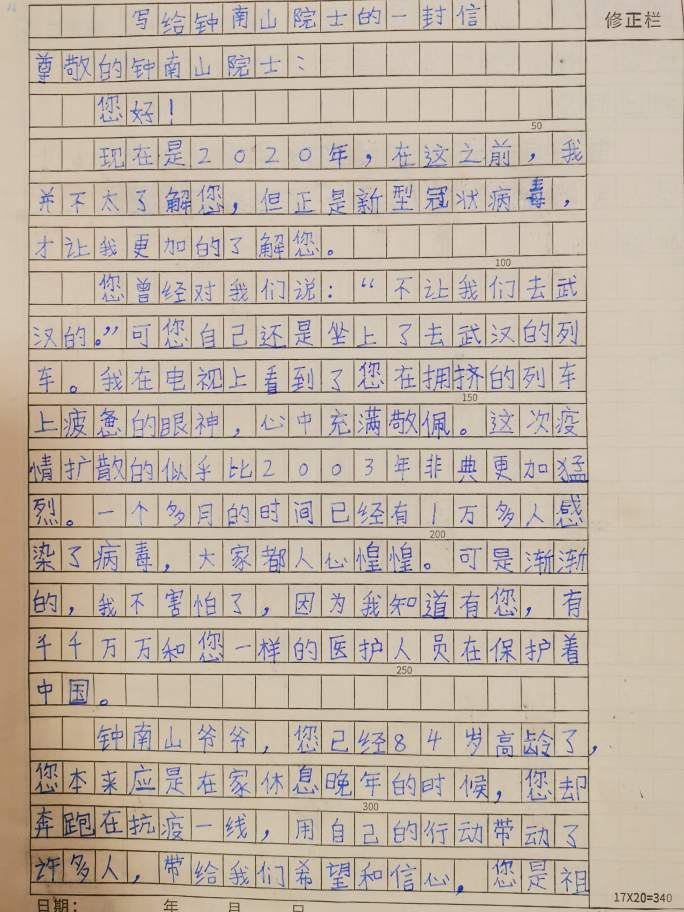 写给钟南山院士的一封信
修正栏
尊敬的钟南山院士：
您好！
50
现在是2020年，在这之前，我
并不太了解您，但正是新型冠状病毒，
才让我更加的了解您。
100
您曾经对我们说：“不让我们去武
汉的。”可您自己还是坐上了去武汉的列
车。我在电视上看到了您在拥挤的列车
150
上疲惫的眼神，心中充满敬佩。这次疫
情扩散的似乎比2003年非典更加猛
烈。一个多月的时间已经有1万多人感
200
染了病毒，大家都人心惶惶。可是渐渐
的，我不害怕了，因为我知道有您，有
千千万万和您一样的医护人员在保护着
250
中国。
钟南山爷爷，您已经84岁高龄了，
您本来应是在家休息晚年的时候，您却
300
奔跑在抗疫一线，用自己的行动带动了
许多人，带给我们希望和信心。您是祖
17X20=340
日期： 年 月 日